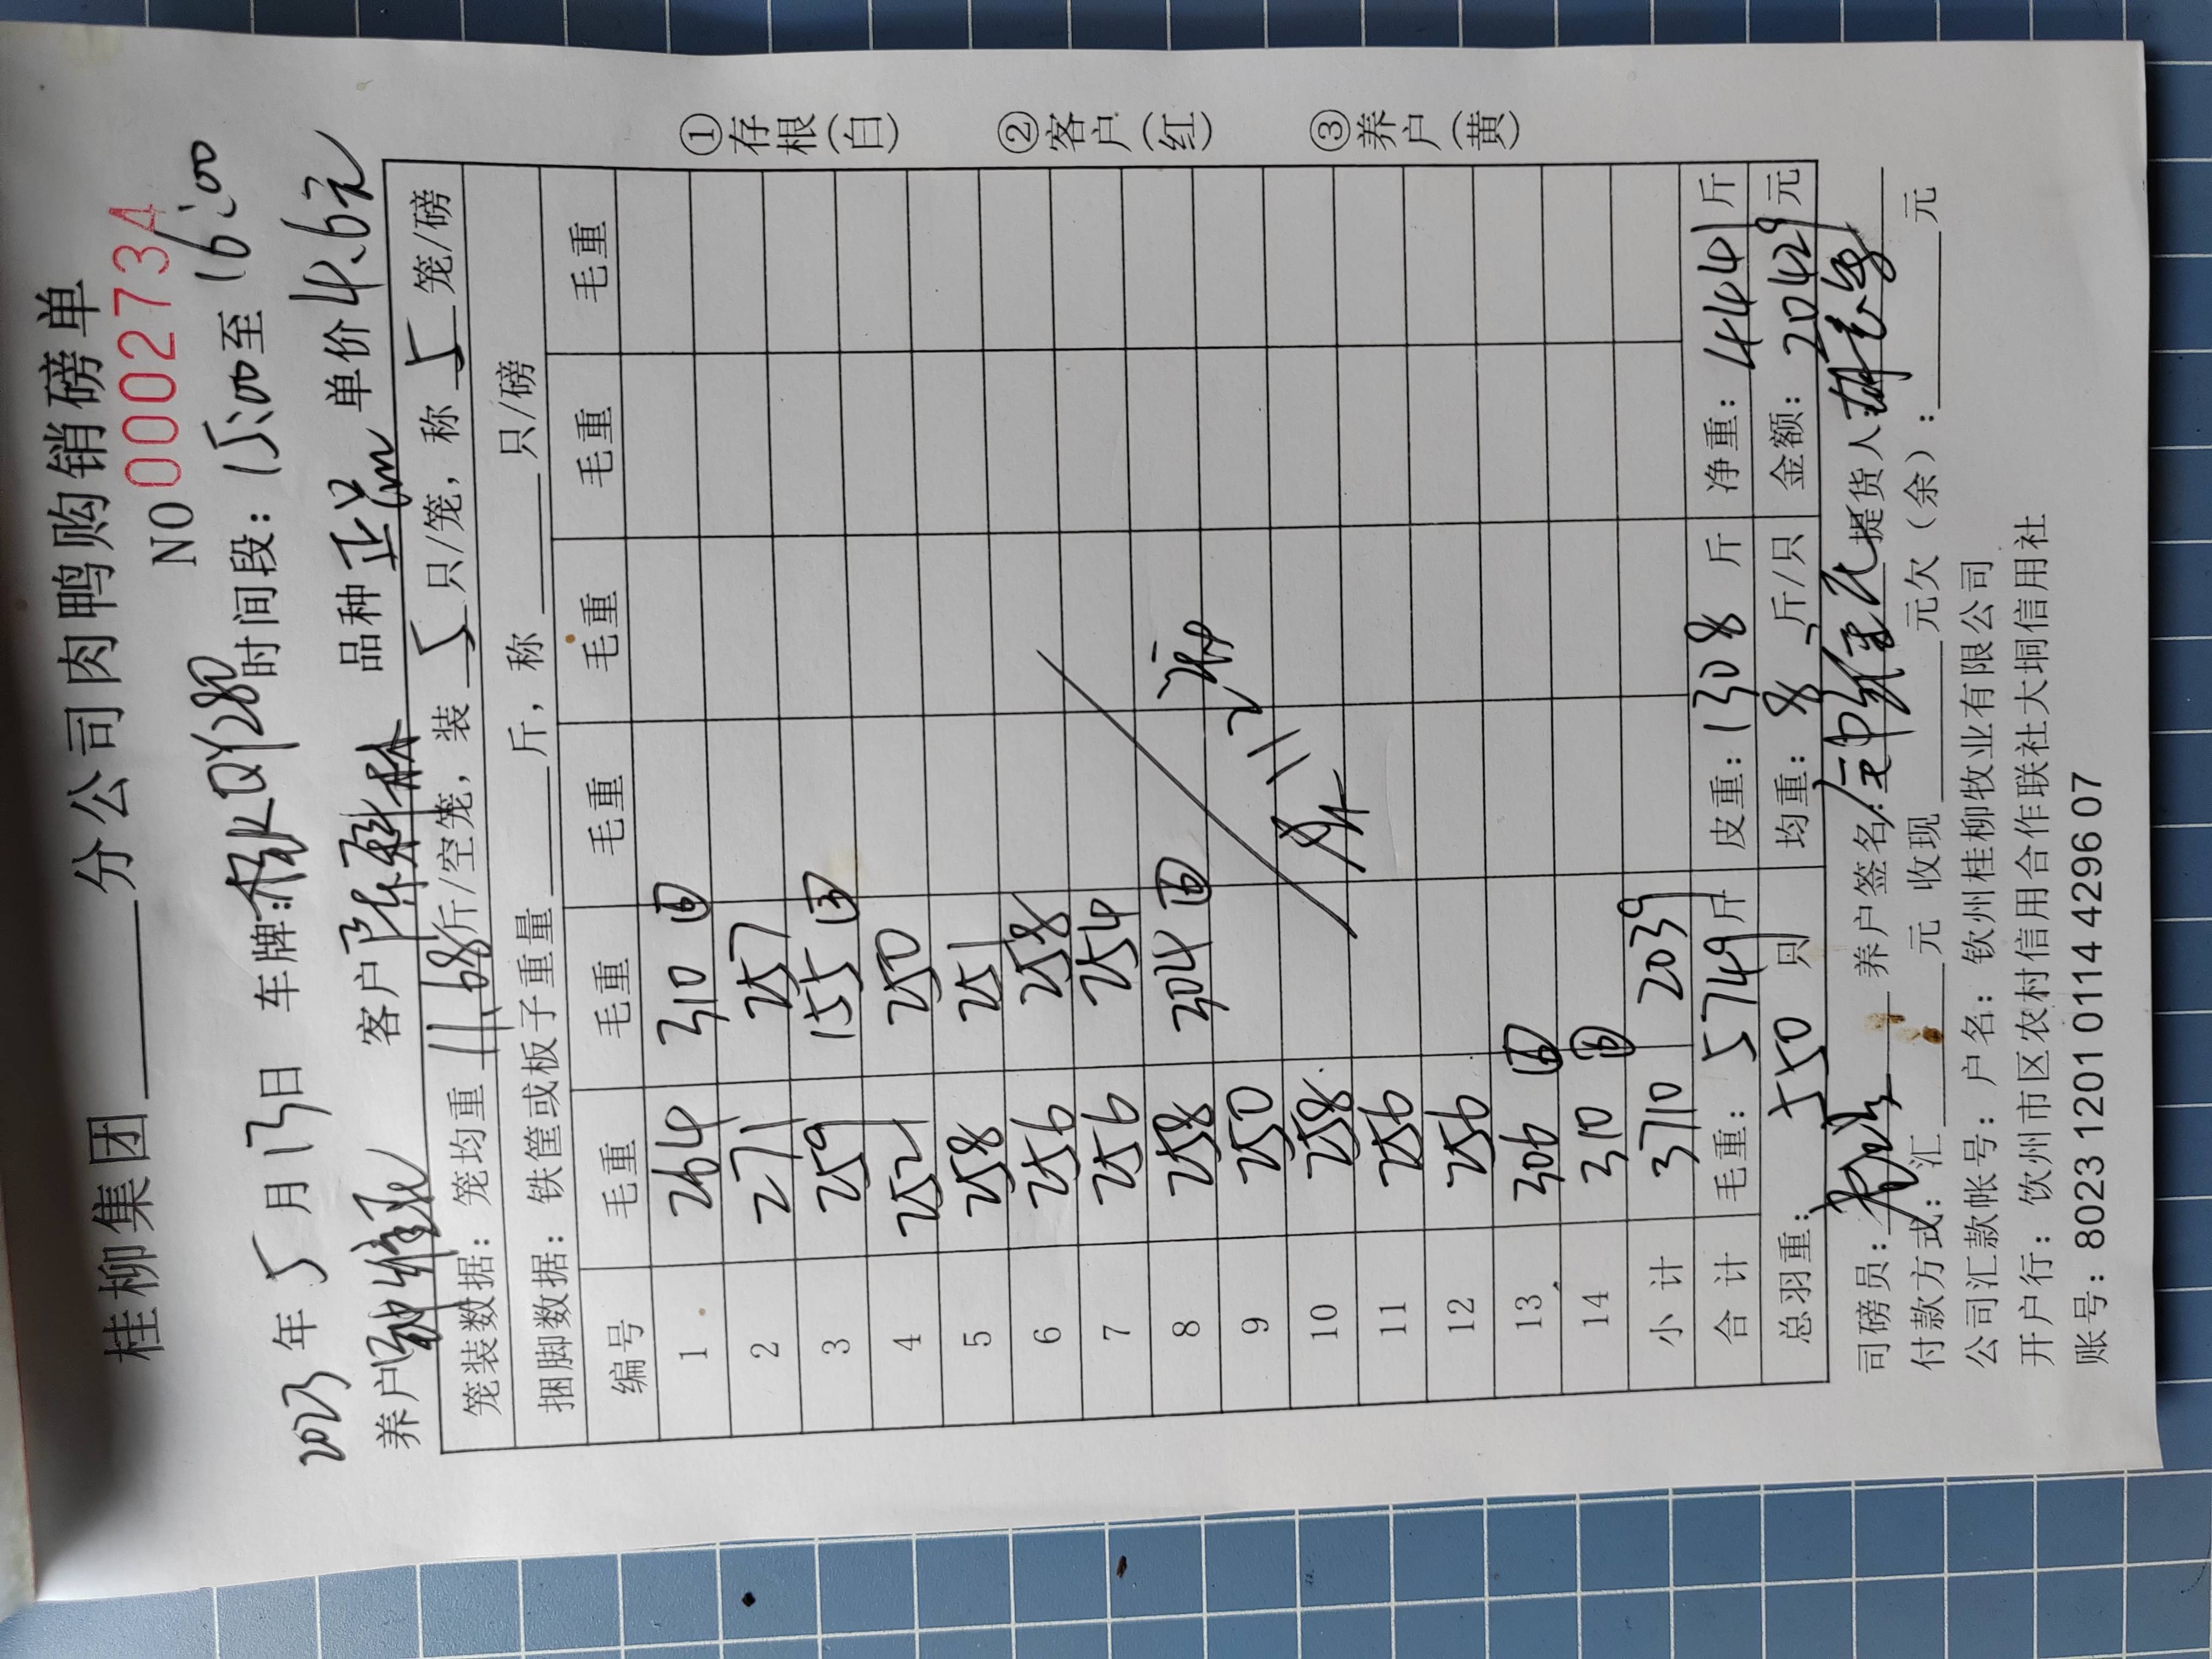 桂柳集团______分公司肉鸭购销磅单
NO 0002734
2023年5月13日 车牌:桂KQY280 时间段：15:00至16:00
养户 维 客户陈 林 品种正品 单价4.6元
笼装数据：笼均重11.68斤/空笼，装5只/笼，称5笼/磅
捆脚数据：铁筐或板子重量____斤，称____只/磅
编号 毛重 毛重 毛重 毛重 毛重 毛重
1 264 310
2 271 257
3 259 155
4 252 250
5 258 251
6 256 258
7 256 254
8 258 304
9 250
10 258
11 256
12 256
13 306
14 310
共112
小计 3710 2039
合计 毛重：5749斤 皮重：1308斤 净重：4441斤
总羽重：550只 均重：8 斤/只 金额：20429元
司磅员： 养户签名： 维 提货人
付款方式：汇____元 收现____元欠（余）：____元
公司汇款帐号：户名：钦州桂柳牧业有限公司
开户行：钦州市区农村信用合作联社大垌信用社
账号：8023 1201 0114 4296 07
①存根（白）
②客户（红）
③养户（黄）